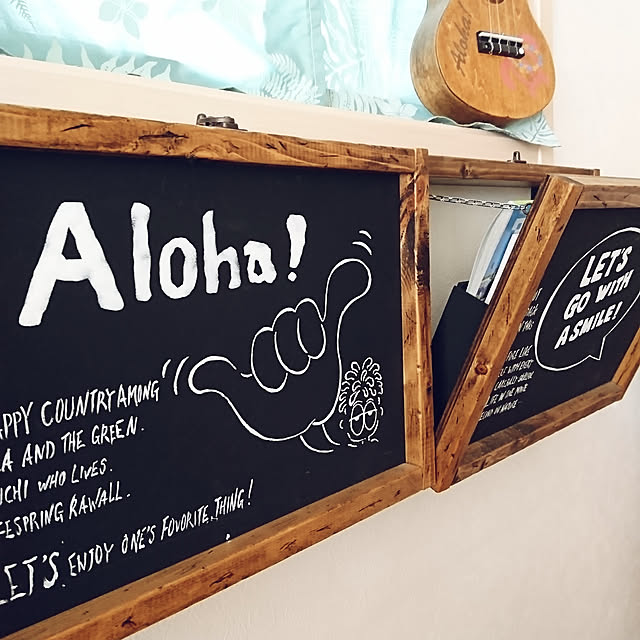 Aloha!
Aloha!
APPY COUNTRY AMONG
A AND THE GREEN.
UCHI WHO LIVES.
FESPRING RAWALL.
LET'S ENJOY ONE'S FOVORITE THING!
LET'S
GO WITH
A SMILE!